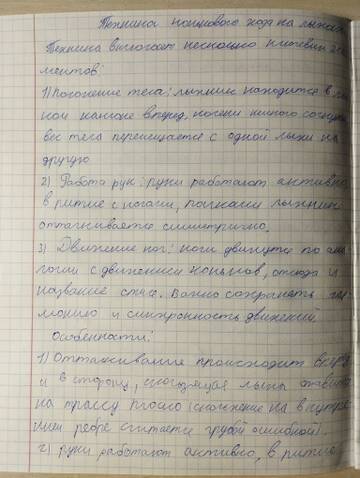 Техника конькового хода на лыжах
Техника включает несколько ключевых эле
ментов:
1) Положение тела: лыжник находится в
ном наклоне вперед, колени немного согнуты
вес тела перемещается с одной лыжи на
другую
2) Работа рук: руки работают активно
в ритме с ногами, палками лыжник
отталкивается симметрично.
3) Движение ног: ноги движутся по ана
логии с движением коньков, отсюда и
название стиля. Важно сохранять гар
монию и синхронность движений
Особенности:
1) Отталкивание происходит вперед
и в сторону, скользящая лыжа ставится
на трассу плоско (скольжение на внутрен
нем ребре считается грубой ошибкой).
2) руки работают активно, в ритме